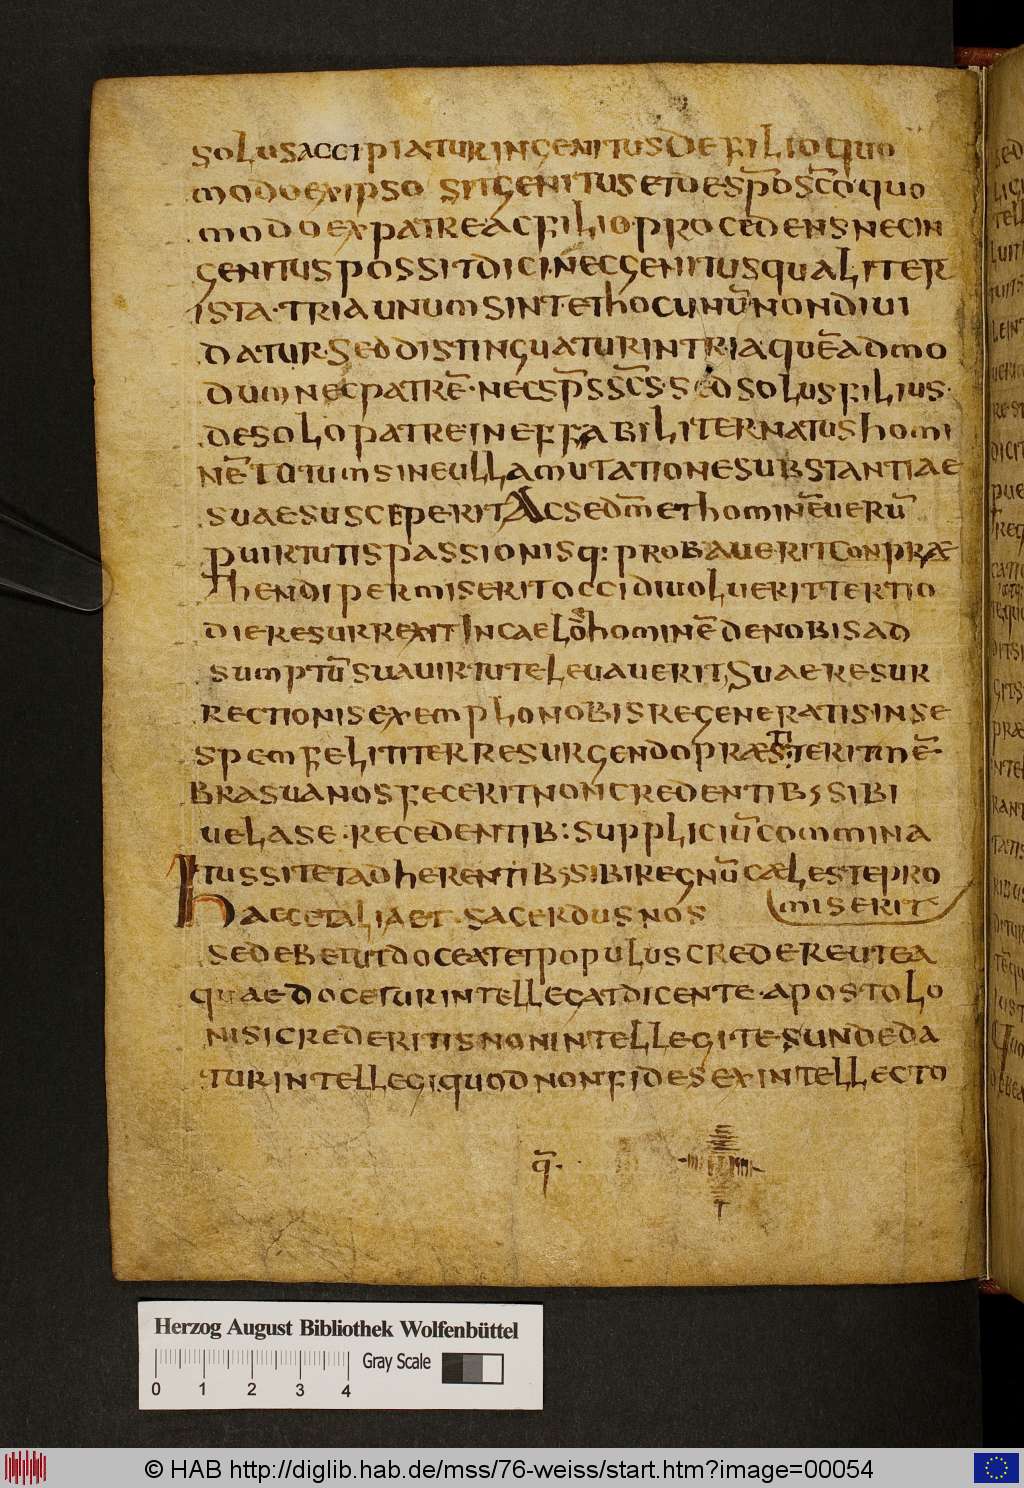 solus accipiatur ingenitus de filio quo
modo ex ipso sit genitus et de sp̄o sc̄o quo
modo ex patre ac filio · procedens nec in
genitus possit dici · nec genitus qualiter
ista · tria unum sint · et hoc unū non diui
datur · sed distinguatur in tria quē ad mo
dum nec patrē · nec sp̄s sc̄s · sed solus filius ·
de solo patre ineffabiliter natus homi
nē totum sine ulla mutatione substantiae
suae susceperit Ac se dm̄ et hominē uerū
p uirtutis passionisq: probauerit conpræ
hendi permiserit occidi uoluerit tertio
die resurrexit In caelos hominē de nobis ad
sumptū sua uirtute leuauerit, Suae resur
rectionis exemplo nobis regeneratis in se
spem feliciter resurgendo præstiterit mē
bra sua nos fecerit non credentib; sibi
uel a se · recedentib: suppliciū commina
tus sit et adherentib; sibi regnū cæleste pro
miserit
Haec et alia et · sacerdus nos
se debet ut doceat et populus credere ut ea
quae docetur intellegat dicente · apostolo
nisi credideritis non intellegitis unde da
tur intellegi quod non fides ex intellecto
q̄ ·
Herzog August Bibliothek Wolfenbüttel
Gray Scale
0 1 2 3 4
© HAB http://diglib.hab.de/mss/76-weiss/start.htm?image=00054